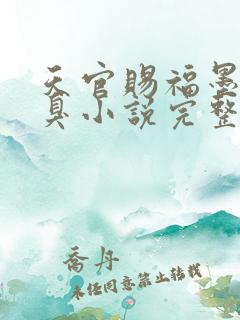 天官赐福墨
臭小说完整
乔丹
未经同意禁止转载